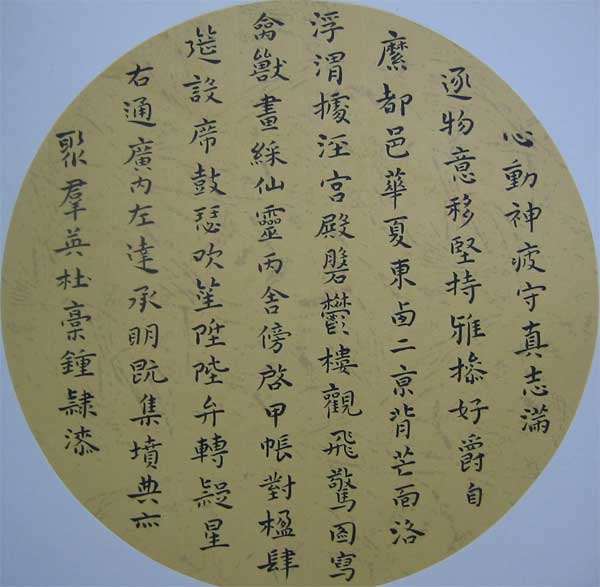 心動神疲守真志滿
逐物意移堅持雅操好爵自
縻都邑華夏東西二京背芒面洛
浮渭據涇宮殿磐鬱樓觀飛驚圖寫
禽獸畫綵仙靈丙舍傍啓甲帳對楹肆
筵設席鼓瑟吹笙陞陛弁轉疑星
右通廣內左達承明既集墳典亦
聚羣英杜稾鍾隸漆